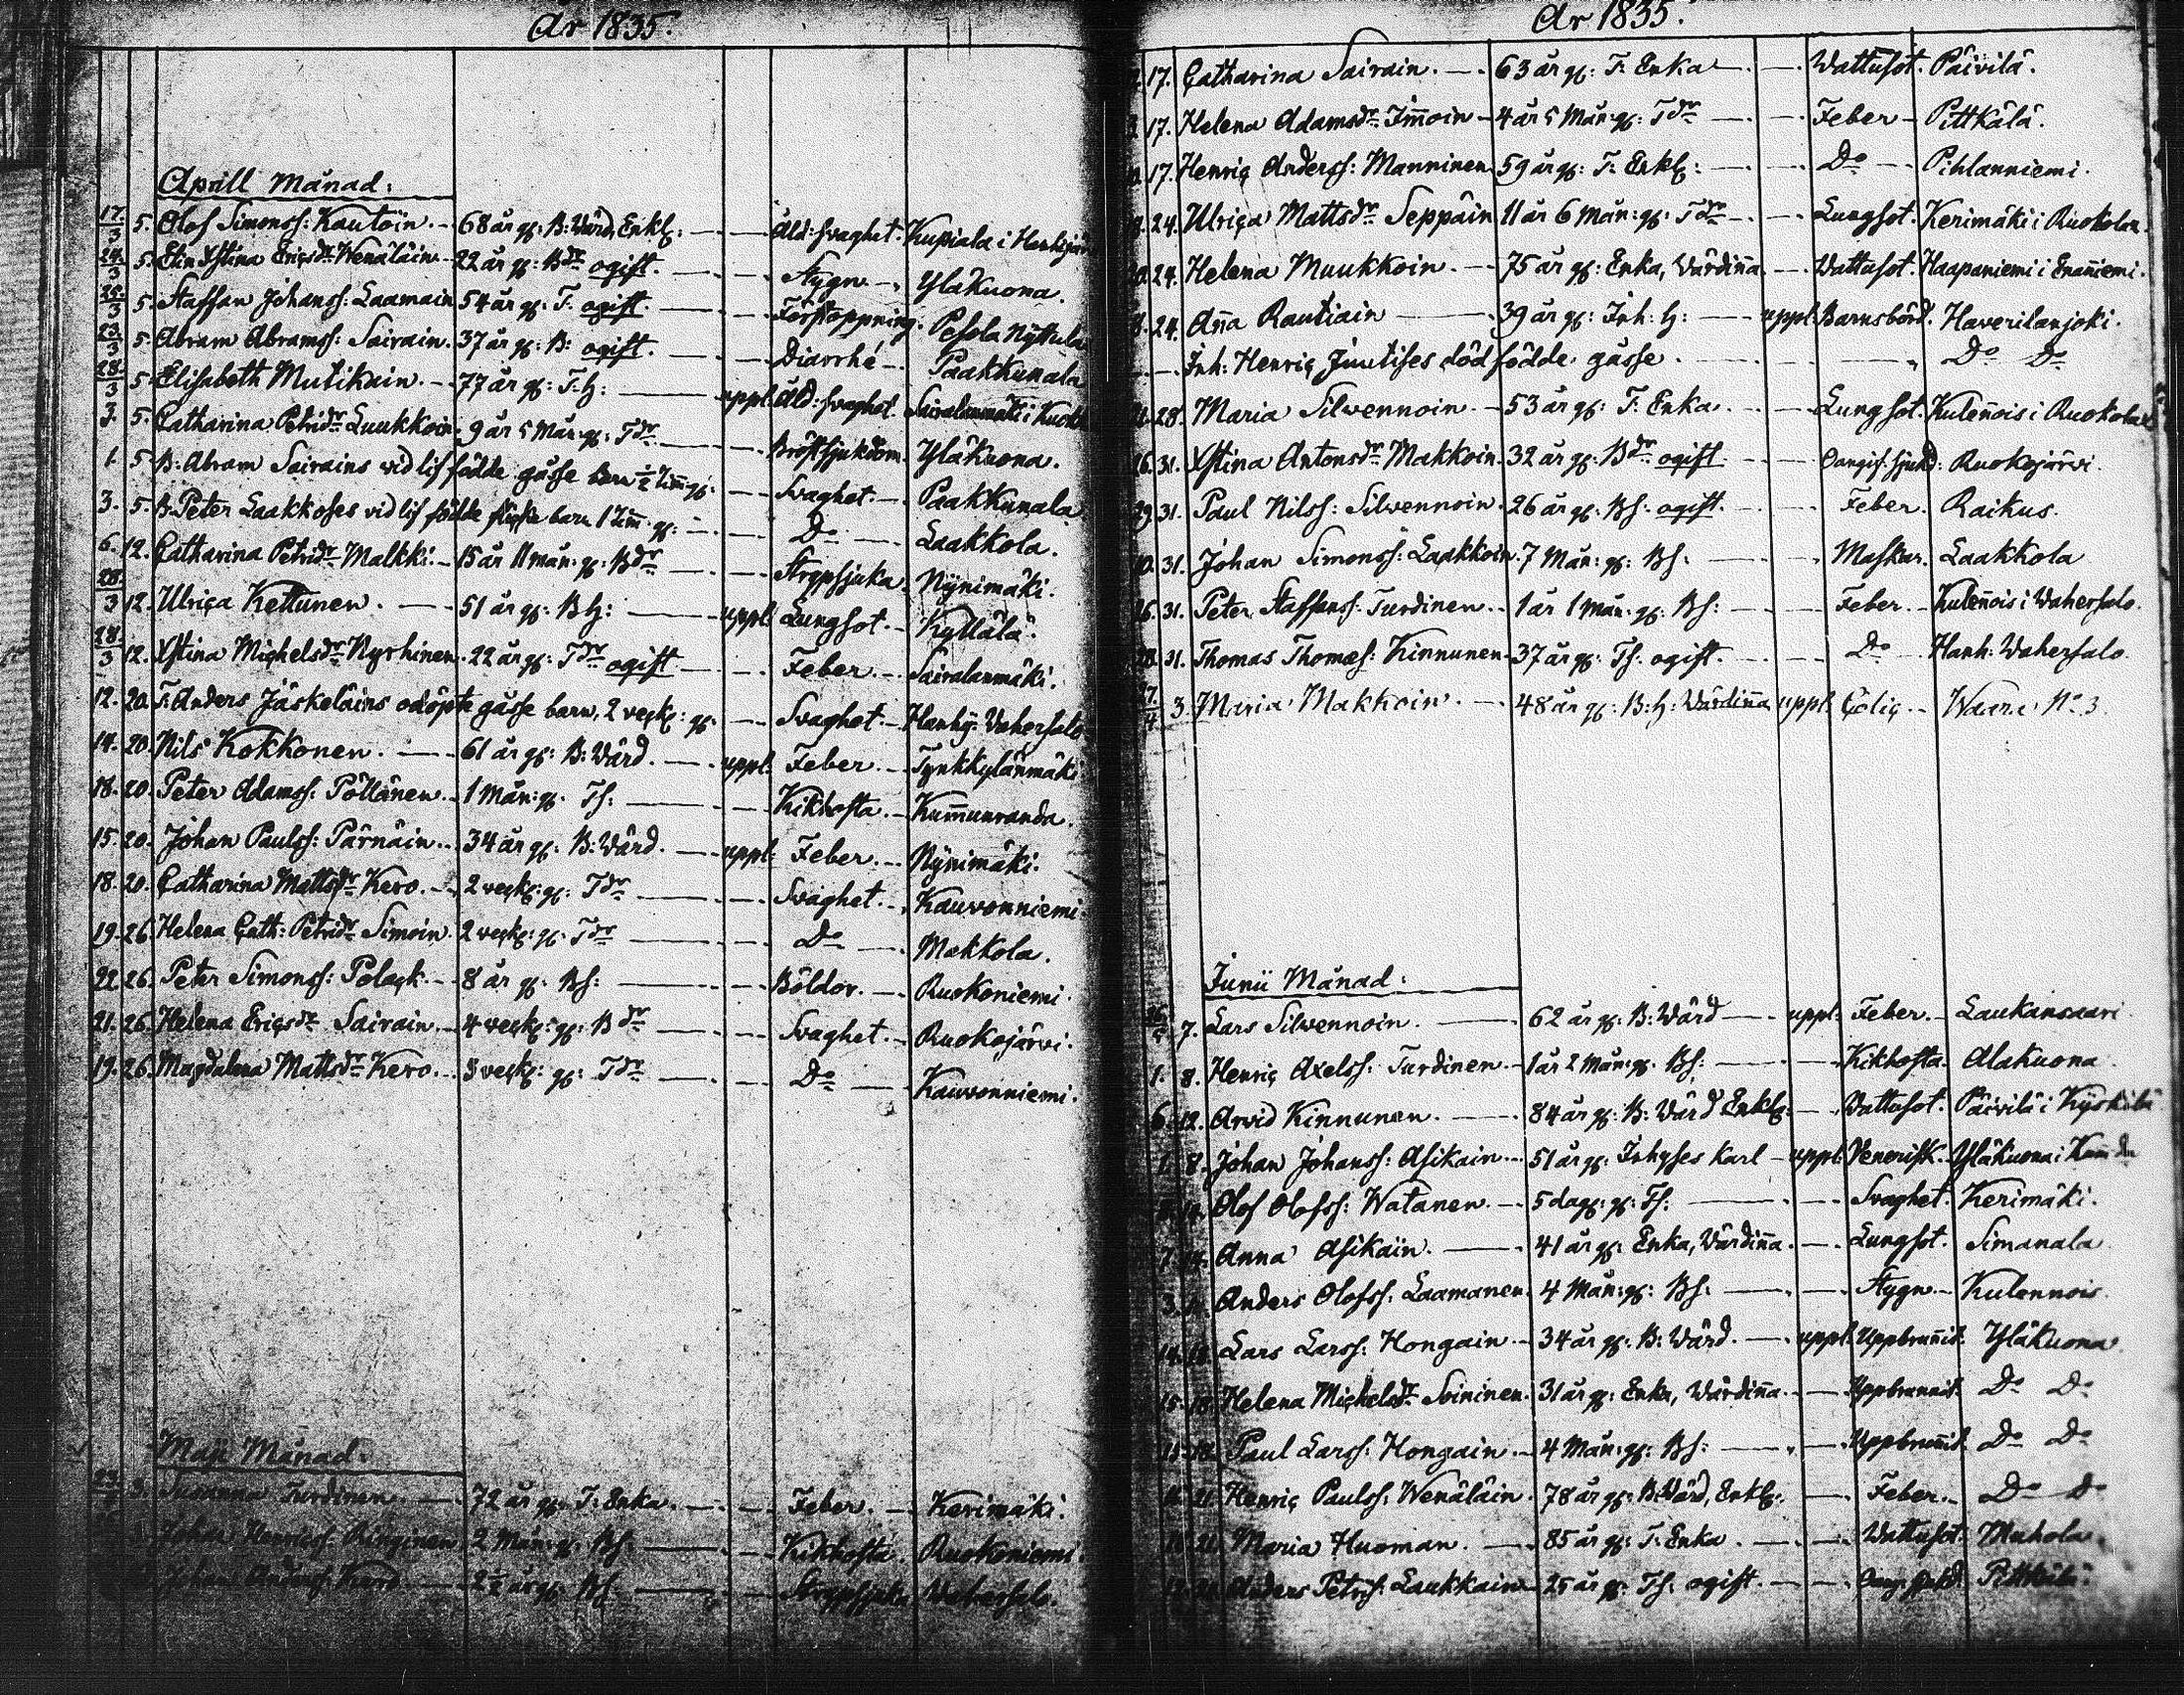 År 1835.
Aprill Månad:
17/3 5. Olof Simonss: Kautoin. 68 år gl: B: Wärd, Enkl: Åld: svaghet. Kupiala i
24/3 5. Elin Xstina Ericsdr Wenäläin 22 år gl: Bdr ogift. Stygn Yläkuona.
5. Staffan Johanss: Laamain 54 år gl: T: ogift. Förstoppning. Pesola Nyttula
23/3 5. Abram Abramss: Sairain. 37 år gl: B: ogift. Diarrhé Paakkunala
28/3 5 Elisabeth Mutikain. 77 år gl: T. H: uppl: Åld: svaghet. Sairalanmäki i
3. 5. Catharina Petridr Luukkoin 9 år 5 Mån: gl: Tdr Bröstsjukdom. Yläkuona.
1. 5 B: Abram Sairains vid lif födde gåsse barn ½ Tim: gl: Svaghet. Paakkunala
3. 5. B: Peter Laakkoses vid lif födde barn 1 Tim: gl: Do Laakkola.
6. 12. Catharina Petridr Malkki. 15 år 11 mån: gl: Bdr Strypsjuka. Nynimäki.
28/3 12. Ulrica Kettunen. 51 år gl: B H: uppl: Lungsot. Kyllälä.
28/3 12. Xstina Michelsdr Nyrhinen. 22 år gl: Tdr ogift Feber. Sairalanmäki.
12. 20. T: Anders Jäskeläins odöpte gåsse barn, 2 veck: gl: Svaghet. Hanhij: Vahersalo
14. 20. Nils Kokkonen. 61 år gl: B: Wärd. uppl: Feber. Tynkkylänmäki
18. 20. Peter Adamss: Pöllänen. 1 Mån: gl: Ts: Kikhosta. Kummunranda.
15. 20. Johan Paulss: Pärnäin. 34 år gl: B: Wärd. uppl: Feber. Nynimäki.
18. 20. Catharina Mattsdr Kero. 2 veck: gl: Tdr Svaghet. Kauvonniemi.
19. 26. Helena Cath: Petridr Simoin. 2 veck: gl: Tdr Do Makkola.
22. 26. Peter Simonss: Polack. 8 år gl: Bs: Böldor. Ruokoniemi.
21. 26. Helena Ericsdr Sairain. 4 veck: gl: Bdr Svaghet. Ruokojärvi.
19. 26. Magdalena Mattsdr Kero. 3 veck: gl: Tdr Do Kauvonniemi.
Maji Månad:
3. Susanna Turdinen. 72 år gl: T: Enka. Feber. Kerimäki.
Johan Henricss: 2 Mån: gl: Bs: Kikhosta. Ruokoniemi.
Johan 2½ år gl: Bs: Strypsjuka Vahersalo.
År 1835.
17. Catharina Sairain. 63 år gl: T: Enka Wattusot. Päivilä.
17. Helena Adamsdr Immoin 4 år 5 Mån: gl: Tdr Feber Pittkälä.
17. Henric Anderss: Manninen 59 år gl: T: Enkl: Do Pihlanniemi.
24. Ulrica Mattsdr Seppäin 11 år 6 Mån: gl: Tdr Lungsot. Kerimäki i Ruokolax.
24. Helena Muukkoin. 75 år gl: Enka, Värdinna. Wattusot. Haapaniemi i Enanniemi.
24. Anna Rautiain 39 år gl: Inh: H: uppl: Barnsbörd. Haverilanjoki.
Inh: Henric Juutises död födde gåsse. Do Do
28. Maria Silvennoin. 53 år gl: T: Enka. Lungsot. Kulennois i Ruokolax
26. 31. Xstina Antonsdr Makkoin. 32 år gl: Bdr ogift. Oangif. sjukd: Ruokojärvi.
29. 31. Paul Nilss: Silvennoin. 26 år gl: Bs: ogift. Feber. Raikus.
31. Johan Simonss: Laakkoin. 7 Mån: gl: Bs: Masken. Laakkola
26. 31. Peter Staffanss: Turdinen. 1 år 1 Mån: gl: Bs: Feber. Kulennois i Wahersalo.
28. 31. Thomas Thomass: Kinnunen. 37 år gl: Ts: ogift. Do Hanh: Wahersalo.
3. Maria Makkoin. 48 år gl: B: H: Wärdinna uppl: Colic Waara No 3.
Junii Månad:
7. Lars Silvennoin. 62 år gl: B: Wärd uppl: Feber. Laukansaari
1. 8. Henric Axelss: Turdinen. 1 år 2 Mån: gl: Bs: Kikhosta. Alakuona
6. 12. Arvid Kinnunen. 84 år gl: B: Värd Enkl: Wattusot. Päivilä i
1. 8. Johan Johanss: Asikain. 51 år gl: Inhyses Karl uppl: Venerisk. Yläkuona i
Olof Olofss: Watanen. 5 dag: gl: Ts: Svaghet. Kerimäki.
7. Anna Asikain. 41 år gl: Enka, Värdinna. Lungsot. Simanala
3. Anders Olofss: Laamanen. 4 Mån: gl: Bs: Stygn. Kulennois.
Lars Larss: Hongain 34 år gl: B: Värd. uppl: Uppbrunnit. Yläkuona
15. 18. Helena Michelsdr Soininen. 31 år gl: Enka, Wärdinna. Uppbrunnit. Do Do
Paul Larss: Hongain. 4 Mån: gl: Bs: Uppbrunnit. Do Do
21. Henric Paulss: Wenäläin. 78 år gl: B: Wärd, Enkl: Feber. Do Do
21. Maria Huoman. 85 år gl: T: Enka. Wattusot. Muhola.
Anders Petrss: Laukkain 25 år gl: Ts: ogift. Oang: sjukd. Pittkälä.